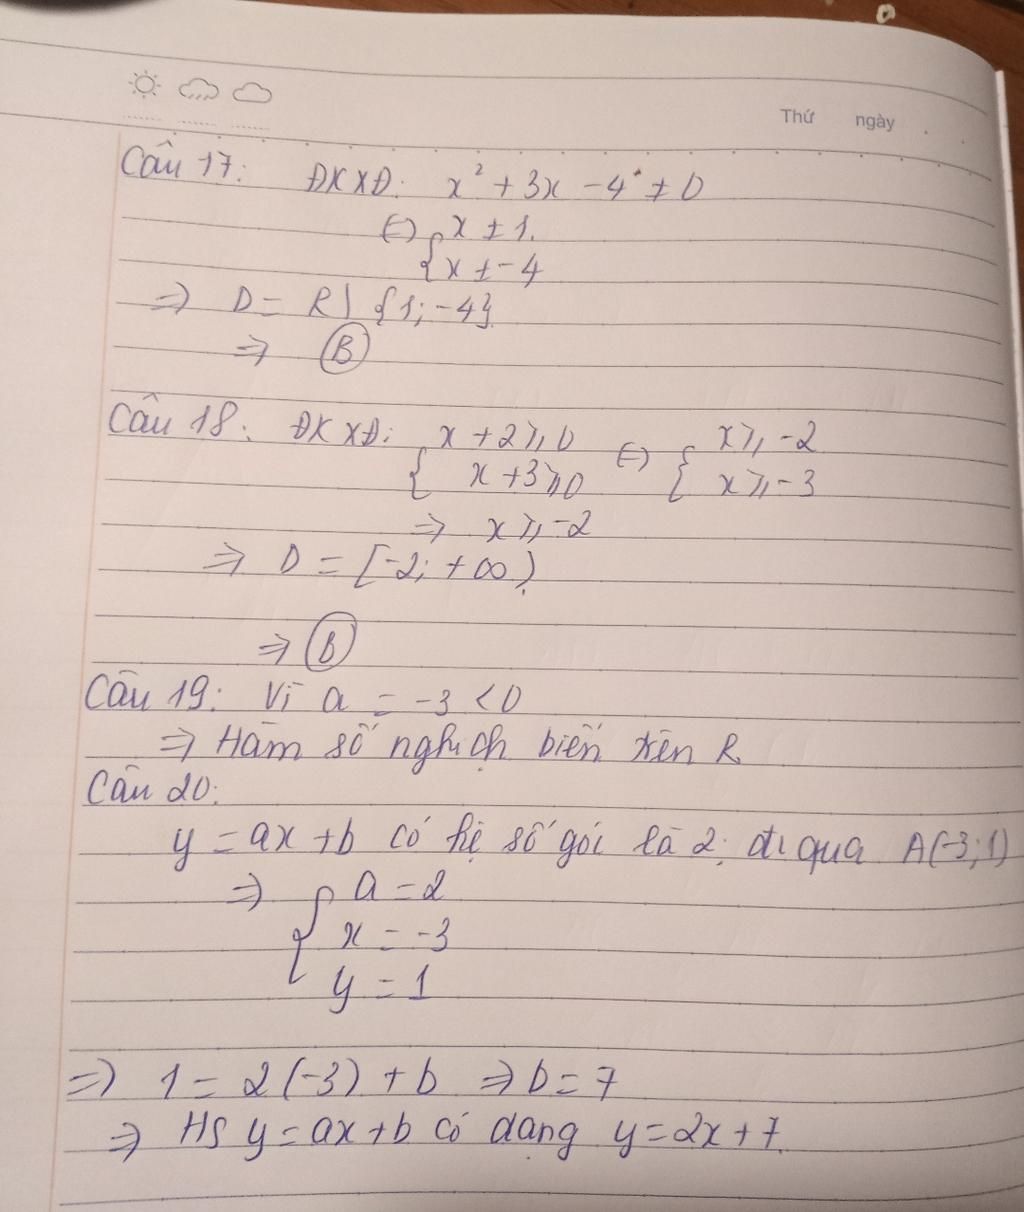 Thứ ngày
Câu 17: ĐKXĐ: x² + 3x - 4 ≠ 0
(=) { x ≠ 1.
x ≠ -4
=> D = R \ {1; -4}
=> B
Câu 18: ĐKXĐ: { x + 2 ⩾ 0 (=) { x ⩾ -2
x + 3 ⩾ 0 x ⩾ -3
=> x ⩾ -2
=> D = [-2; +∞)
=> B
Câu 19: Vì a = -3 < 0
=> Hàm số nghịch biến trên R
Câu 20:
y = ax + b có hệ số góc là 2; đi qua A(-3; 1)
=> { a = 2
x = -3
y = 1
=> 1 = 2(-3) + b => b = 7
=> HS y = ax + b có dạng y = 2x + 7.